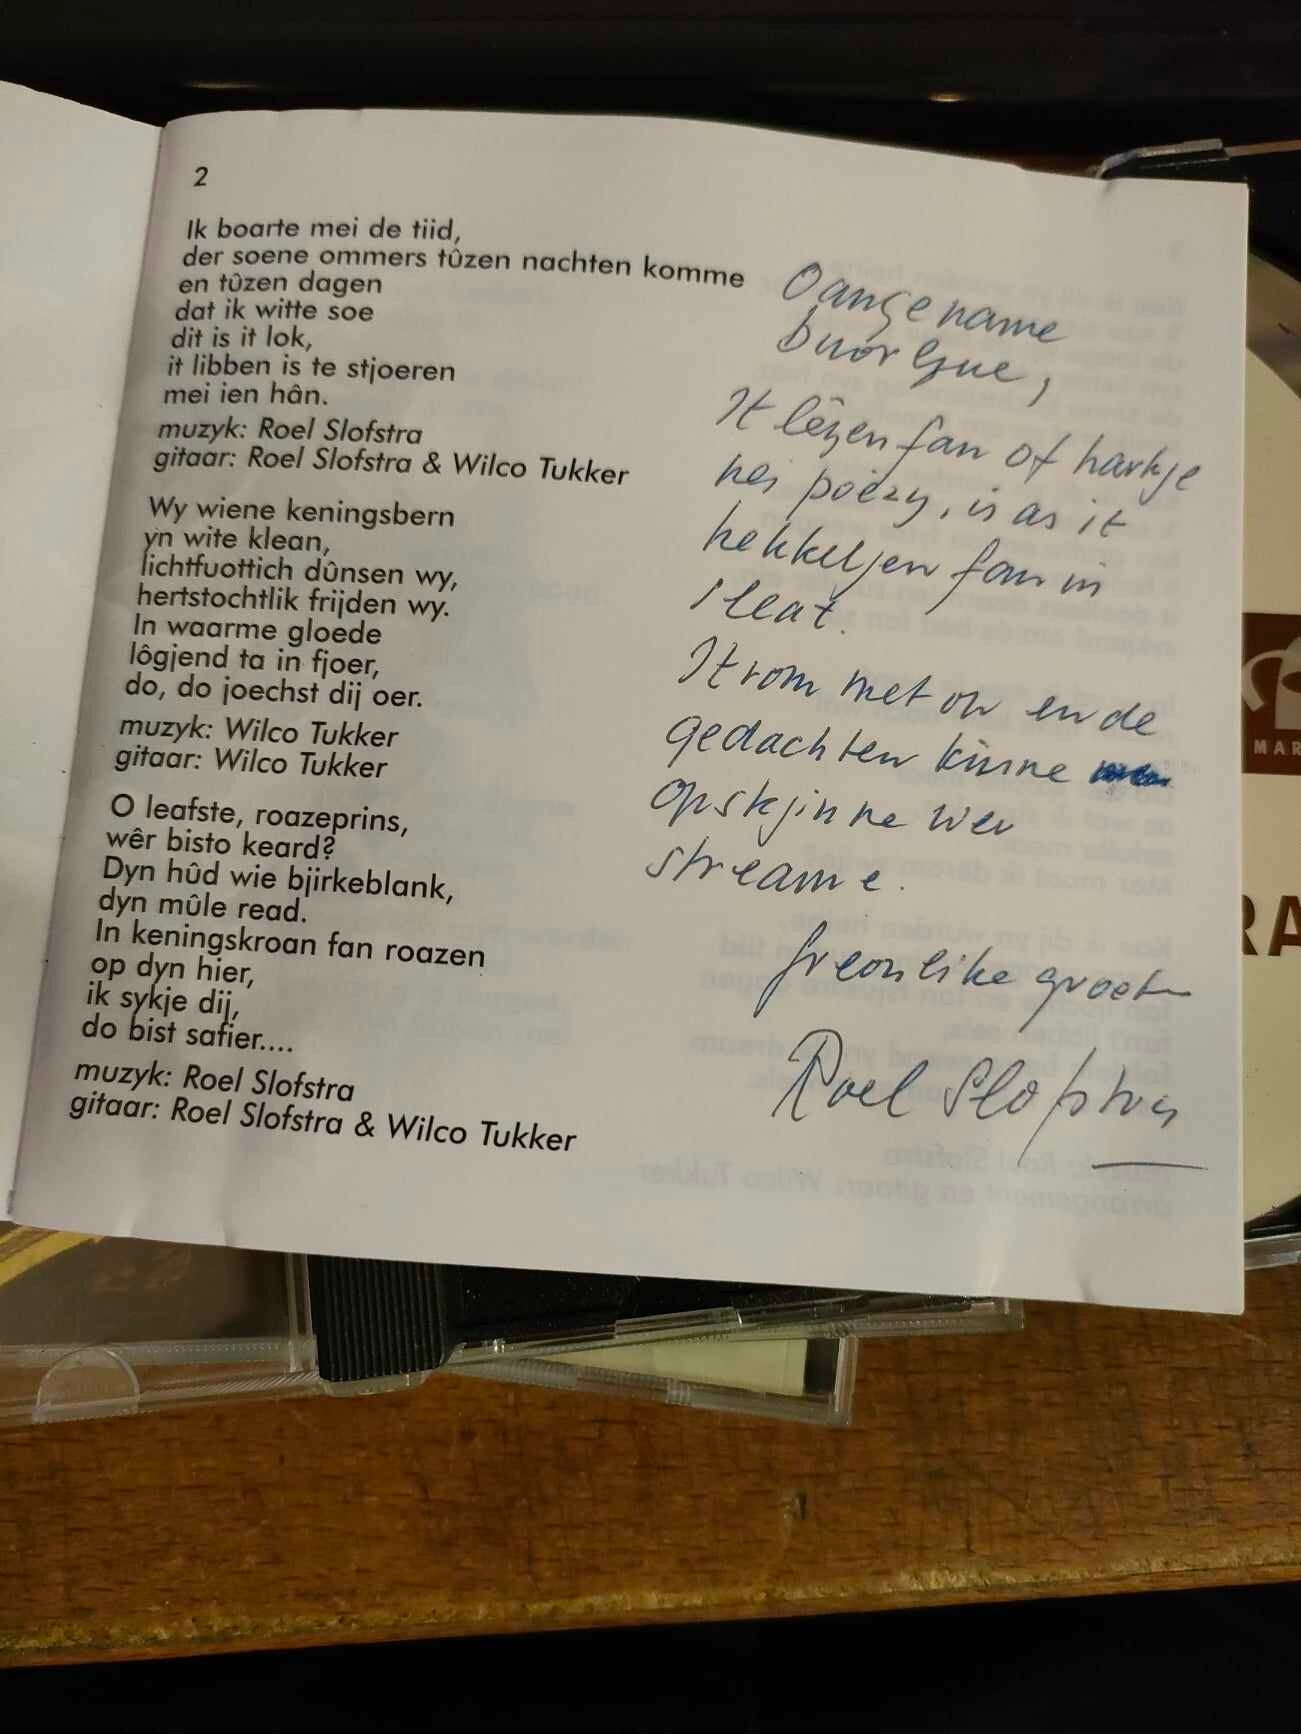 2
Ik boarte mei de tiid,
der soene ommers tûzen nachten komme
en tûzen dagen
dat ik witte soe
dit is it lok,
it libben is te stjoeren
mei ien hân.
muzyk: Roel Slofstra
gitaar: Roel Slofstra & Wilco Tukker
Wy wiene keningsbern
yn wite klean,
lichtfuottich dûnsen wy,
hertstochtlik frijden wy.
In waarme gloede
lôgjend ta in fjoer,
do, do joechst dij oer.
muzyk: Wilco Tukker
gitaar: Wilco Tukker
O leafste, roazeprins,
wêr bisto keard?
Dyn hûd wie bjirkeblank,
dyn mûle read.
In keningskroan fan roazen
op dyn hier,
ik sykje dij,
do bist safier....
muzyk: Roel Slofstra
gitaar: Roel Slofstra & Wilco Tukker
Oangename
buorlju,
It lêzen fan of harkje
nei poëzy, is as it
hekkeljen fan in
sleat.
It rom met op en de
gedachten kinne
opskjinne wer
streame.
freonlike groet
Roel Slofstra
MAR
RA